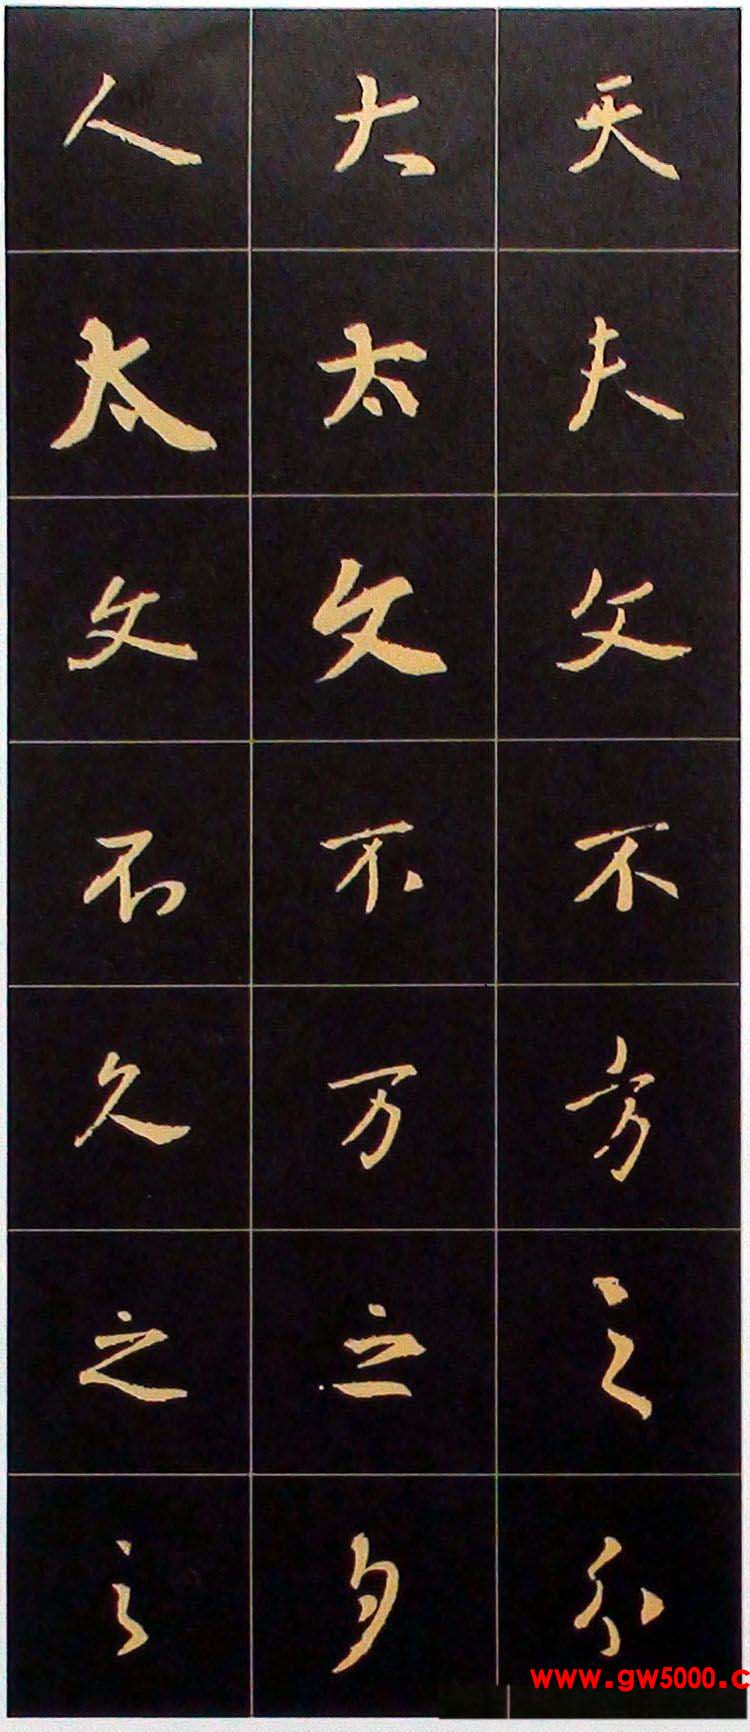 人 大 天
太 太 夫
文 文 父
不 不 不
久 万 方
之 之 之
之 夕
www.gw5000.c